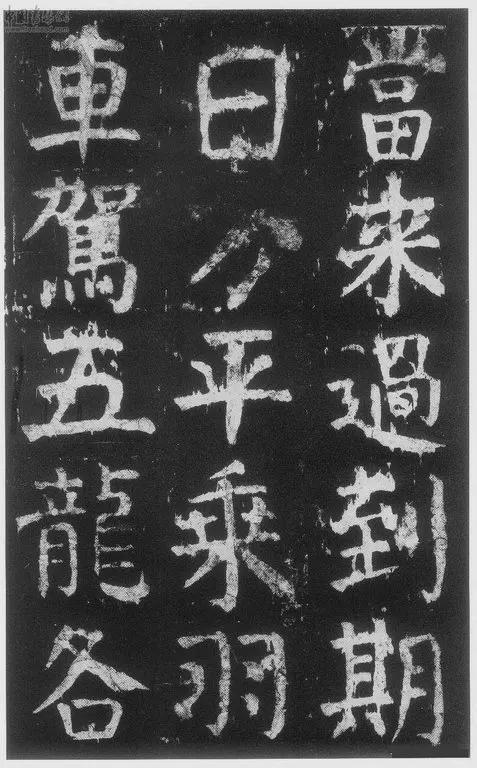 當來過到期
日方平乘羽
車駕五龍各